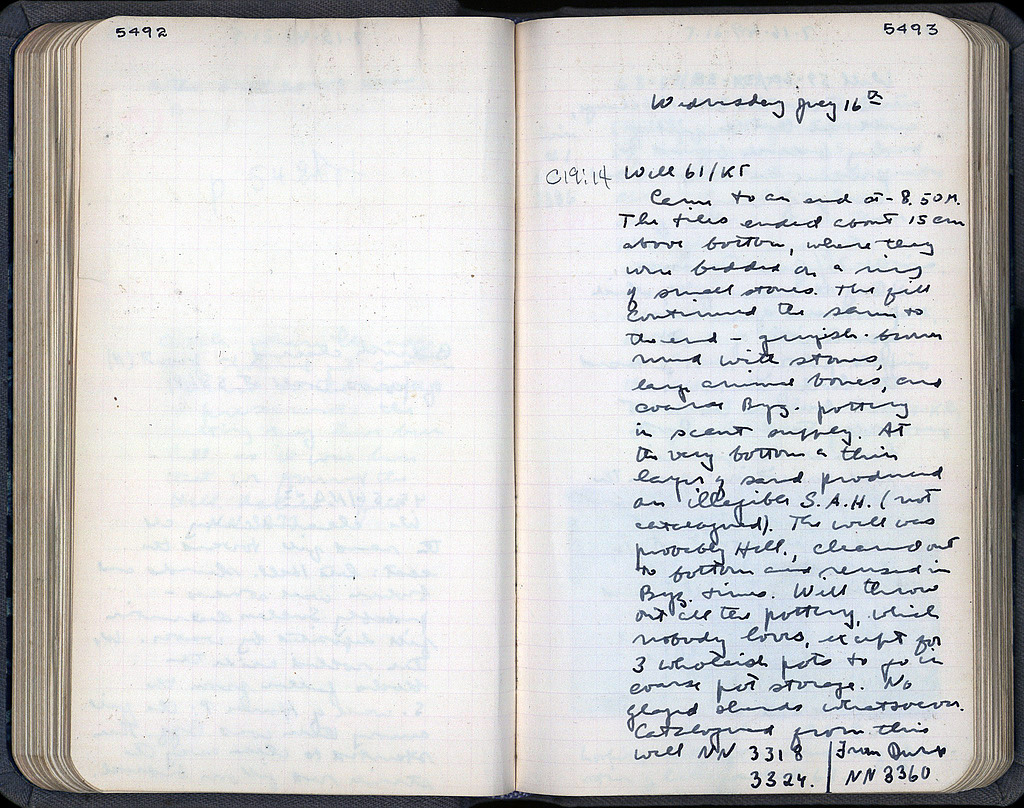 5492
5493
Wednesday July 16th
C19:14 Well 61/KT
Came to an end at - 8.50 M.
The tiles ended about 15 cm
above bottom, where they
were bedded on a ring
of small stones. The fill
continued the same to
the end - greyish-brown
mud with stones,
large animal bones, and
coarse Byz. pottery
in scant supply. At
the very bottom a thin
layer of sand produced
an illegible S.A.H. (not
catalogued). The well was
probably Hell., cleaned out
to bottom and reused in
Byz. times. Will throw
out all the pottery, which
nobody loves, except for
3 wholeish pots to go in
coarse pot storage. No
glazed sherds whatsoever.
Catalogued from this
well NN 3318 | From Dump
3324. | NN 3360